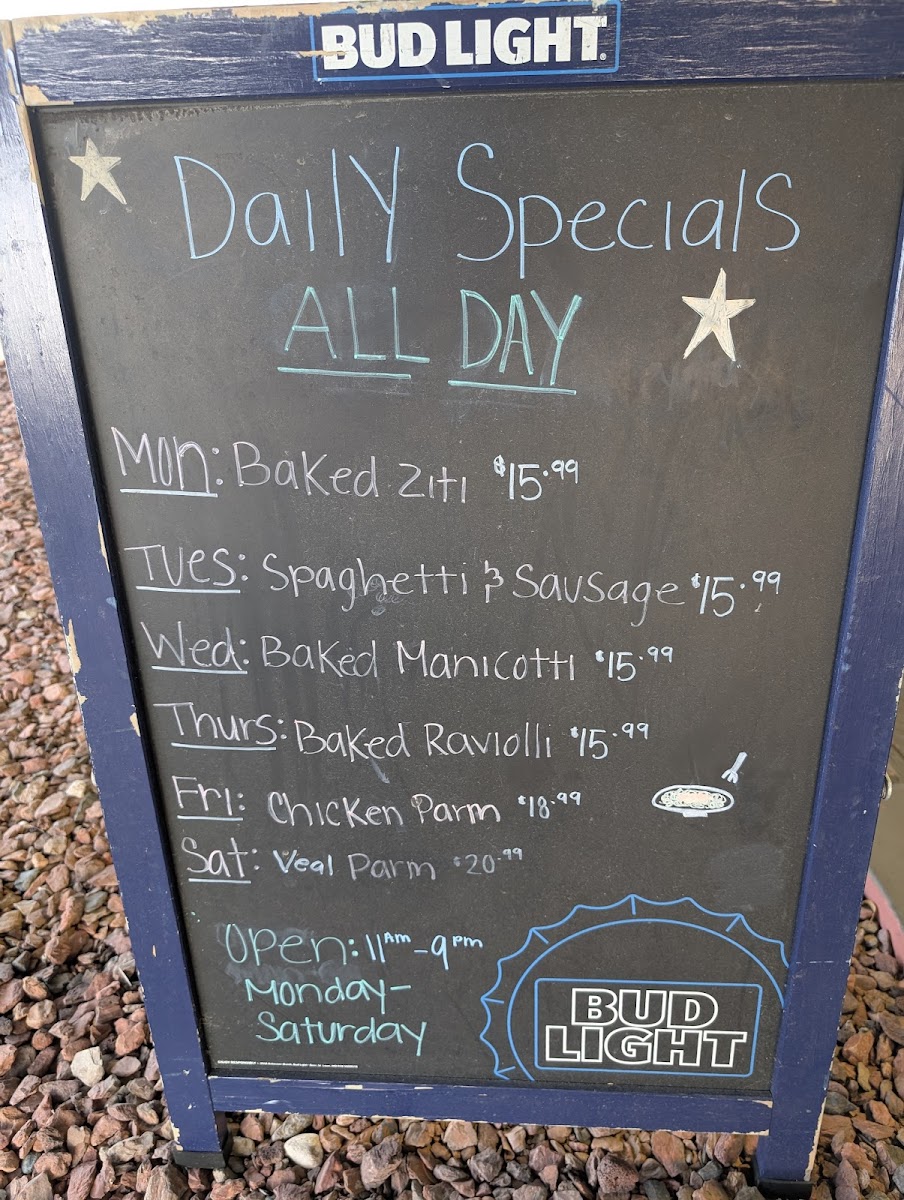 BUD LIGHT
Daily Specials
ALL DAY
Mon: Baked Ziti $15.99
Tues: Spaghetti & Sausage $15.99
Wed: Baked Manicotti $15.99
Thurs: Baked Raviolli $15.99
Fri: Chicken Parm $18.99
Sat: Veal Parm $20.99
Open: 11am-9pm
Monday-
Saturday
BUD
LIGHT